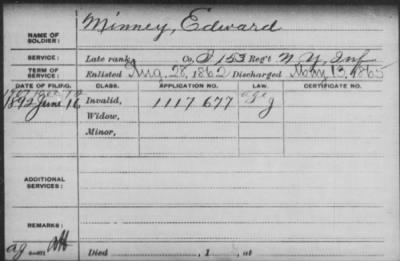 NAME OF SOLDIER: Minney, Edward
SERVICE: Late rank Co. 153 Reg't N. Y. Inf
TERM OF SERVICE: Enlisted Aug. 28, 1862 Discharged May 13, 1865
DATE OF FILING. CLASS. APPLICATION NO. LAW. CERTIFICATE NO.
1907
1892 June 16 Invalid, 1117677 age
Widow, J
Minor,
ADDITIONAL SERVICES:
REMARKS:
ag
Died , 1 , at